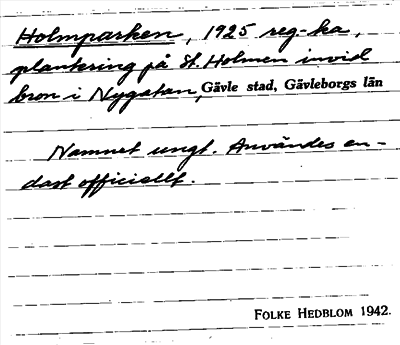 Holmparken, 1925 reg-ka,
plantering på St. Holmen invid
bron i Nygatan, Gävle stad, Gävleborgs län
Namnet ungt. Användes en-
dast officiellt.
FOLKE HEDBLOM 1942.